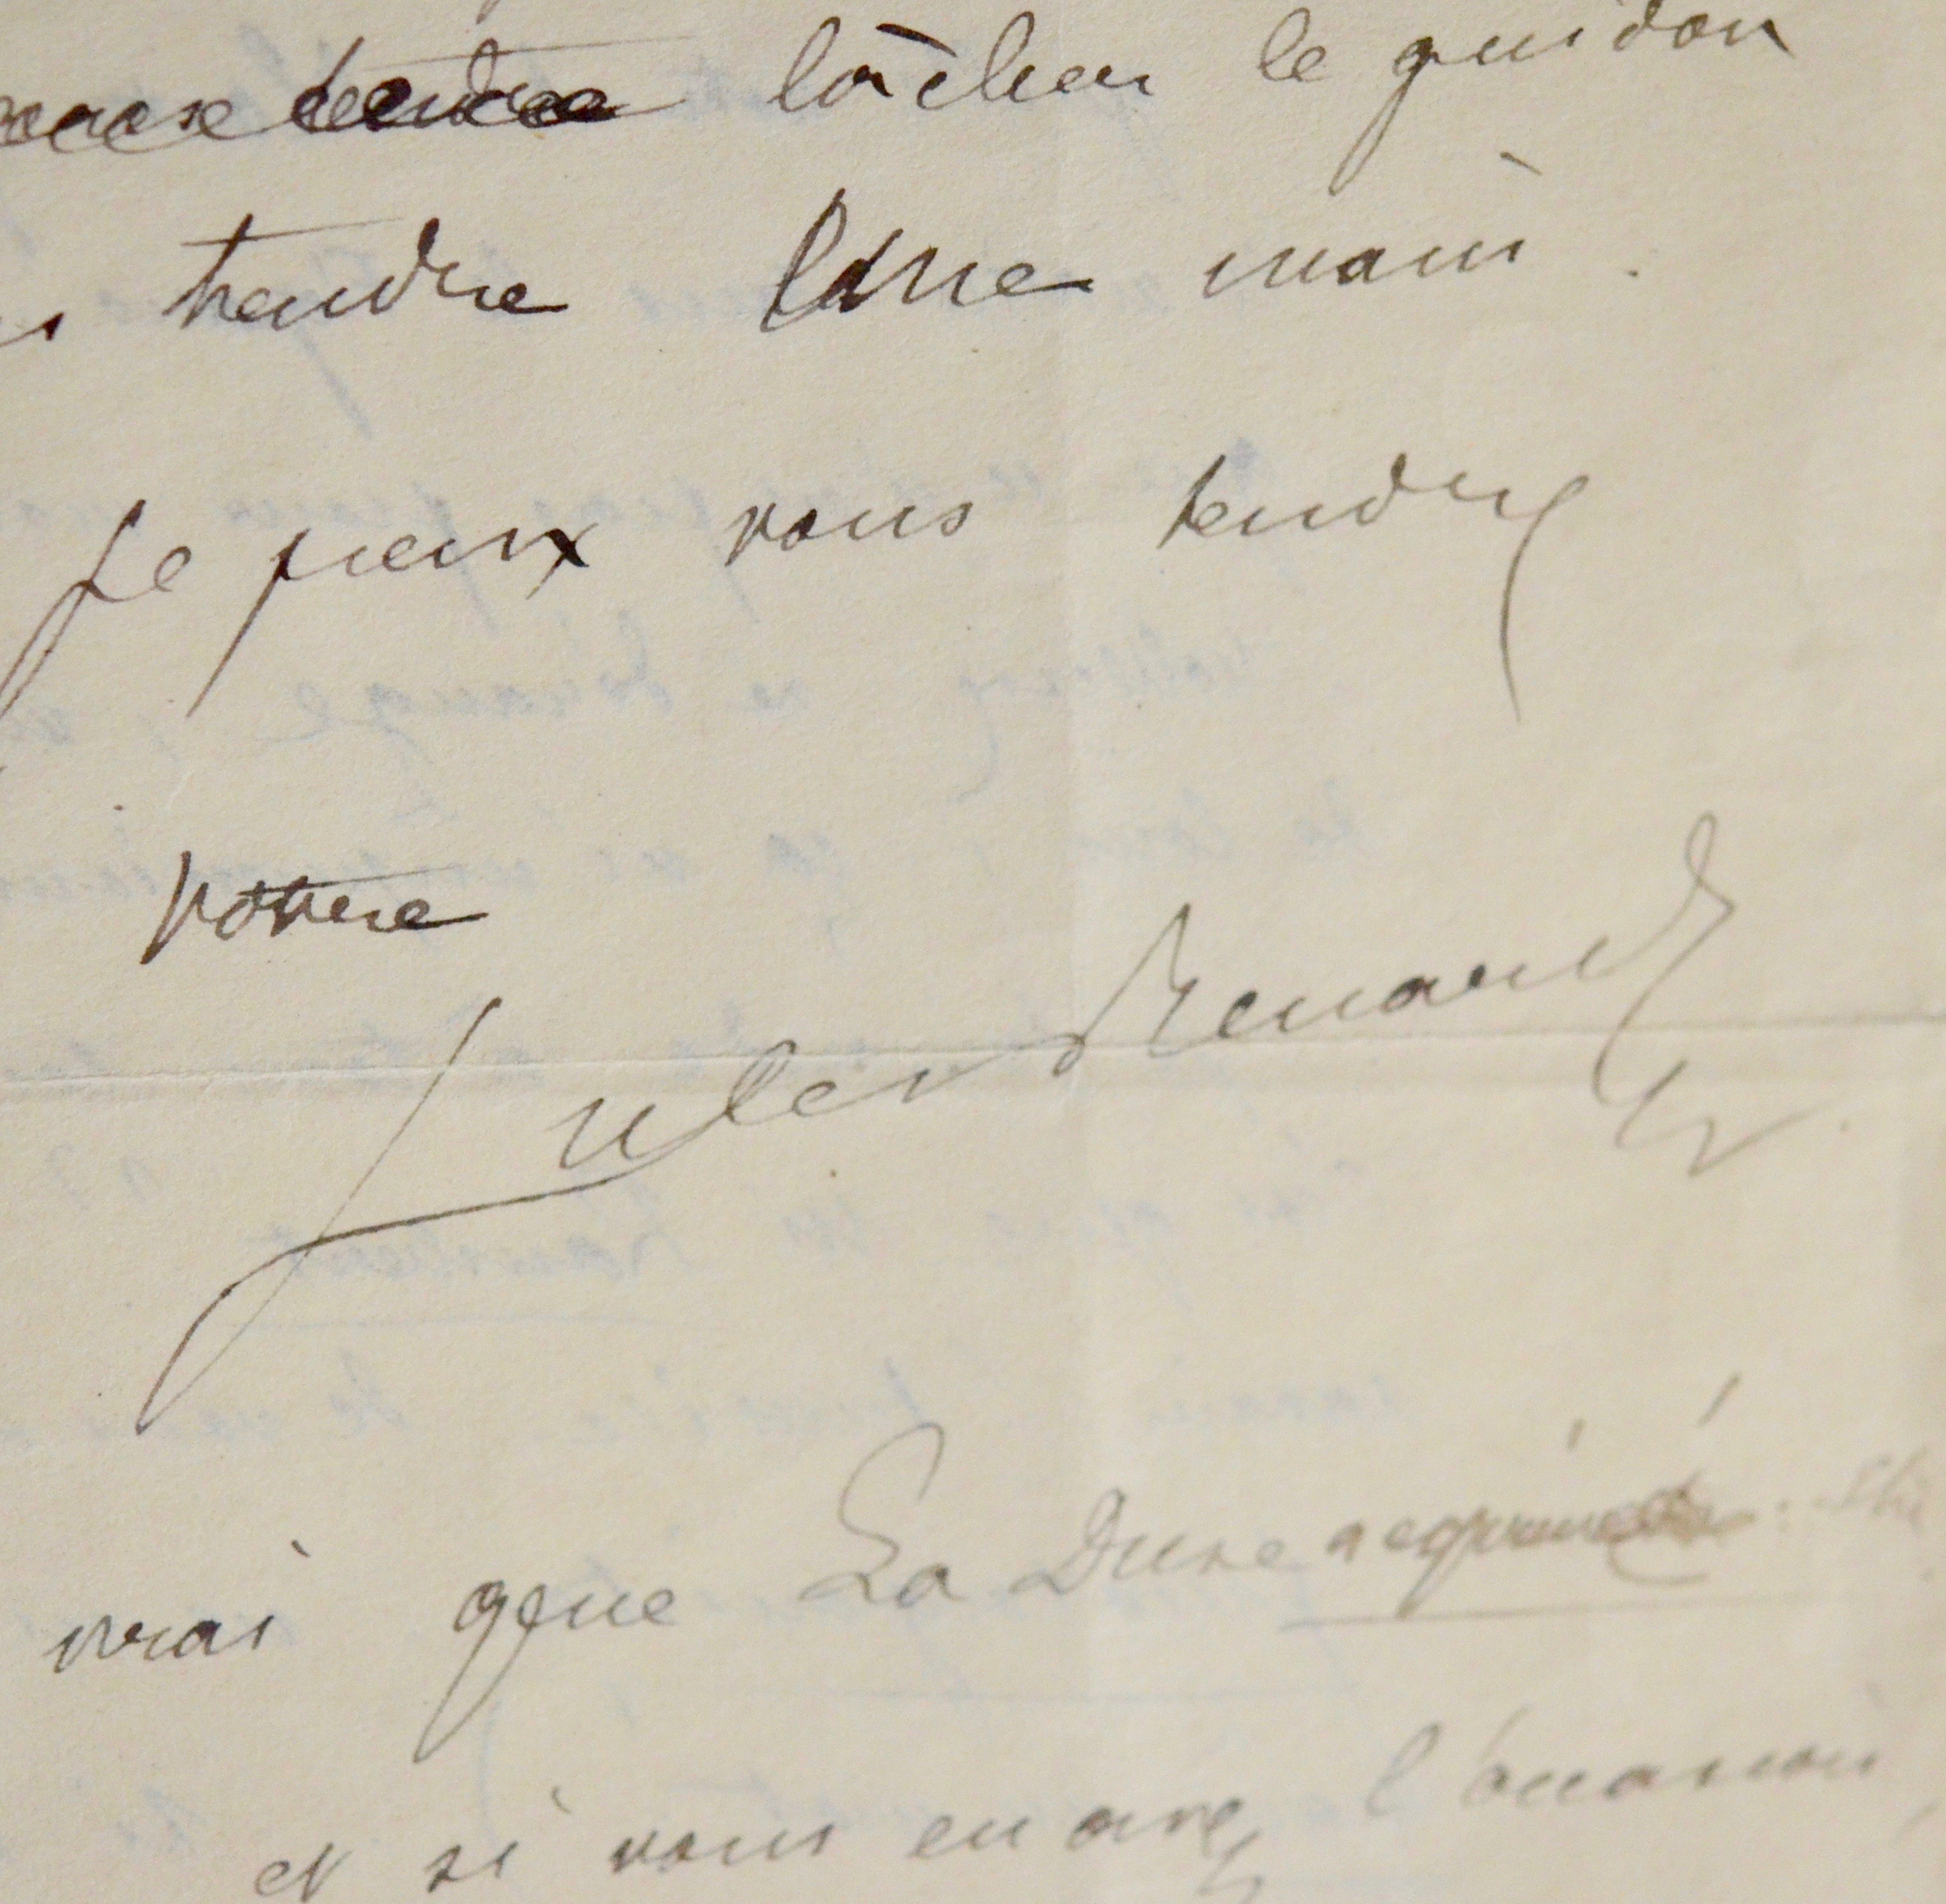 lâcher le guidon
tendre une main.
Je peux vous tendre
votre
Jules Renard
vrai que La Duse
et si vous en avez l'occasion,